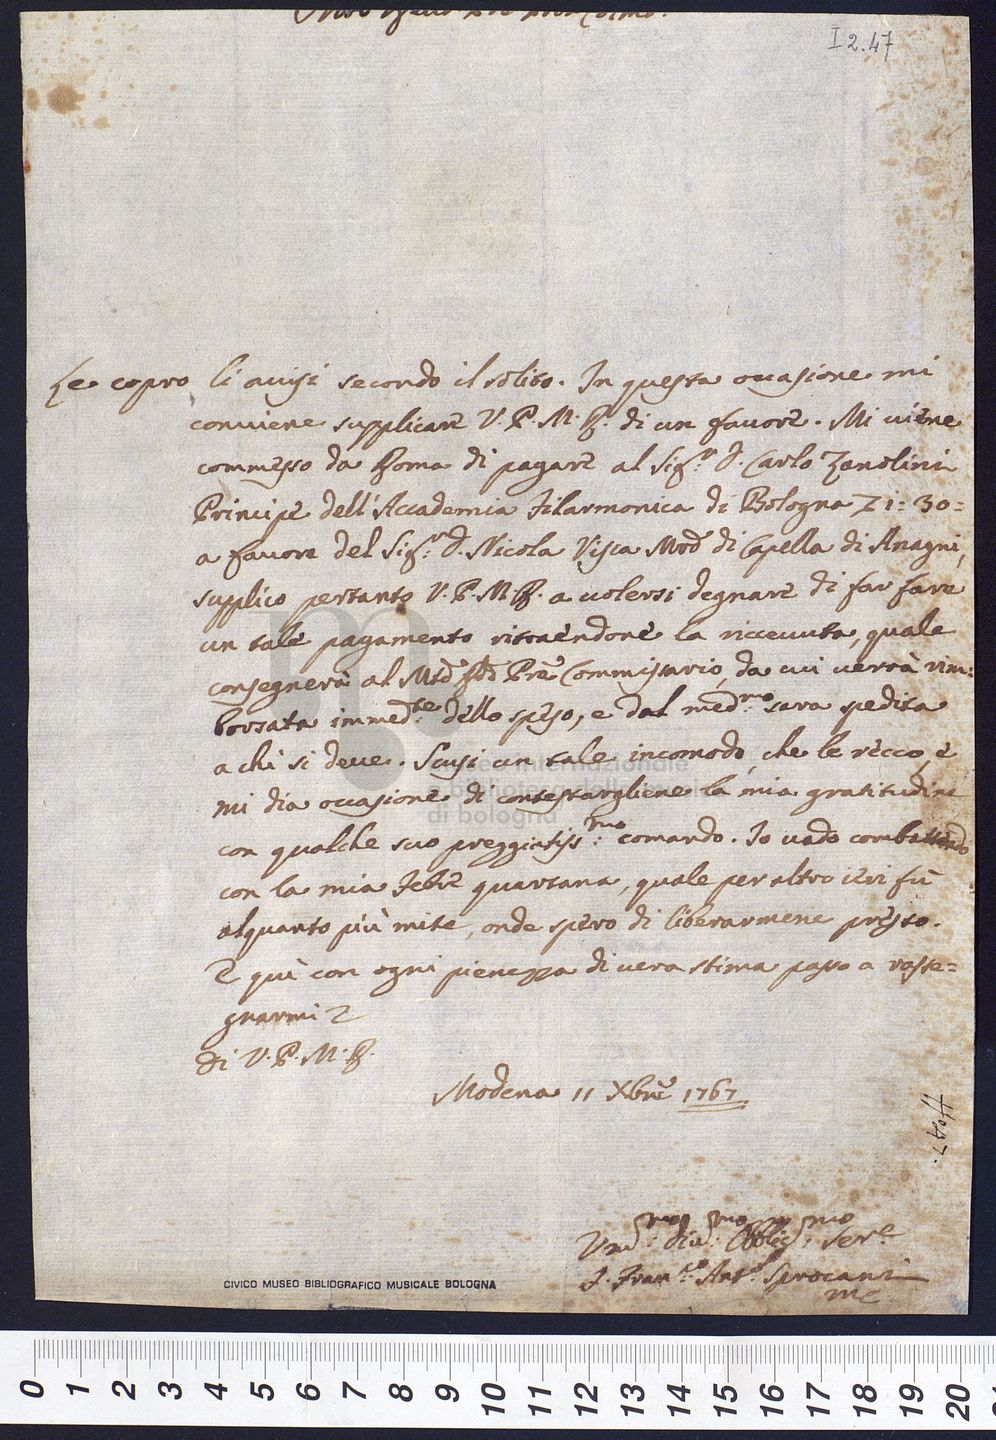 I 2.47
Le copro li auisi secondo il solito. In questa occasione mi
conuiene supplicare V. P. M. R. di un fauore. Mi uiene
commesso da Roma di pagare al Sig.r D. Carlo Zanolini
Principe dell'Accademia Filarmonica di Bologna 1: 30=
a fauore del Sig.r D. Nicola Visca di Capella di Anagni,
supplico pertanto V. P. M. R. a uolersi degnare di far fare
un tale pagamento ritraendone la riceuuta, quale
consegnerà al Pre Commissario, da cui uerrà rim=
borsata immed.te dello speso, e dal med.mo sara spedita
a chi si deue. Scusi un tale incomodo, che le recco, e
mi dia occasione di contestargliene la mia gratitudine
con qualche suo preggiatiss.mo comando. Io uado combattendo
con la mia Febre quartana, quale per altro ieri fù
alquanto più mite, onde spero di liberarmene presto.
E quì con ogni pienezza di uera stima passo a rasse=
gnarmi
di V. P. M. R.
Modena 11 Xbre 1767
Vm.o Diu.mo Obblig.mo Ser.e
F. Fran.co Ant.o Sprocani
mc
CIVICO MUSEO BIBLIOGRAFICO MUSICALE BOLOGNA
museo internazionale
e biblioteca della musica
di bologna
0 1 2 3 4 5 6 7 8 9 10 11 12 13 14 15 16 17 18 19 20